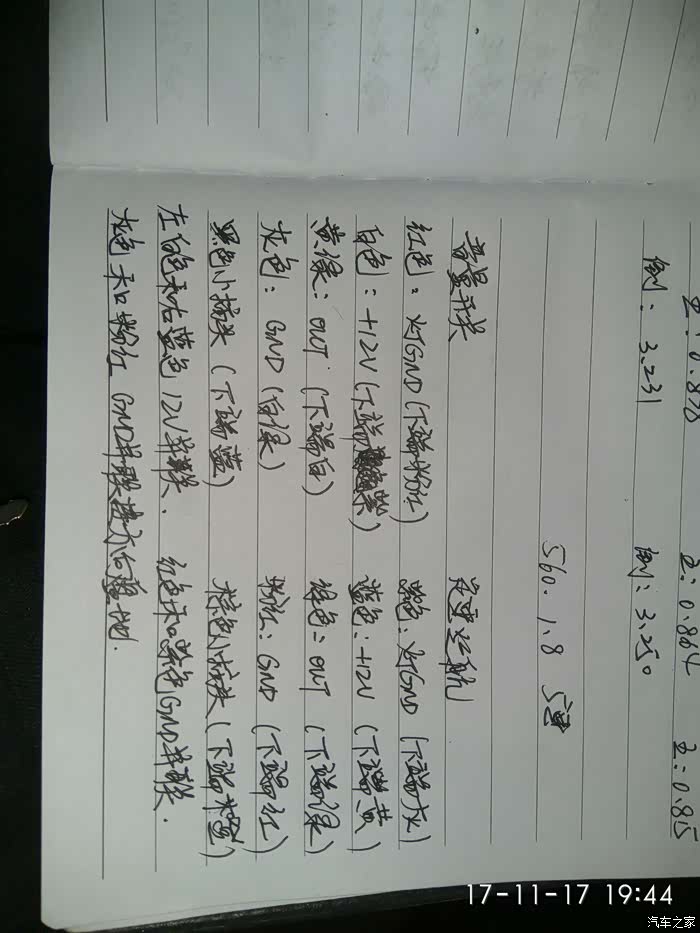 正: 0.878 正: 0.864 正: 0.815
倒: 3.231 倒: 3.250
560. 1.8 5速
音量开关 定速巡航
红色: 灯GND (下端粉红) 紫色: 灯GND (下端灰)
白色: +12V (下端紫) 蓝色: +12V (下端黄)
黄绿: OUT (下端白) 绿色: OUT (下端绿)
灰色: GND (白绿) 粉红: GND (下端红)
黑色小插头 (下端蓝) 棕色小插头 (下端橙)
左白色和右蓝色 12V并联. 红色和紫色GND并联.
灰色和粉红 GND并联接方右盘地.
17-11-17 19:44
汽车之家